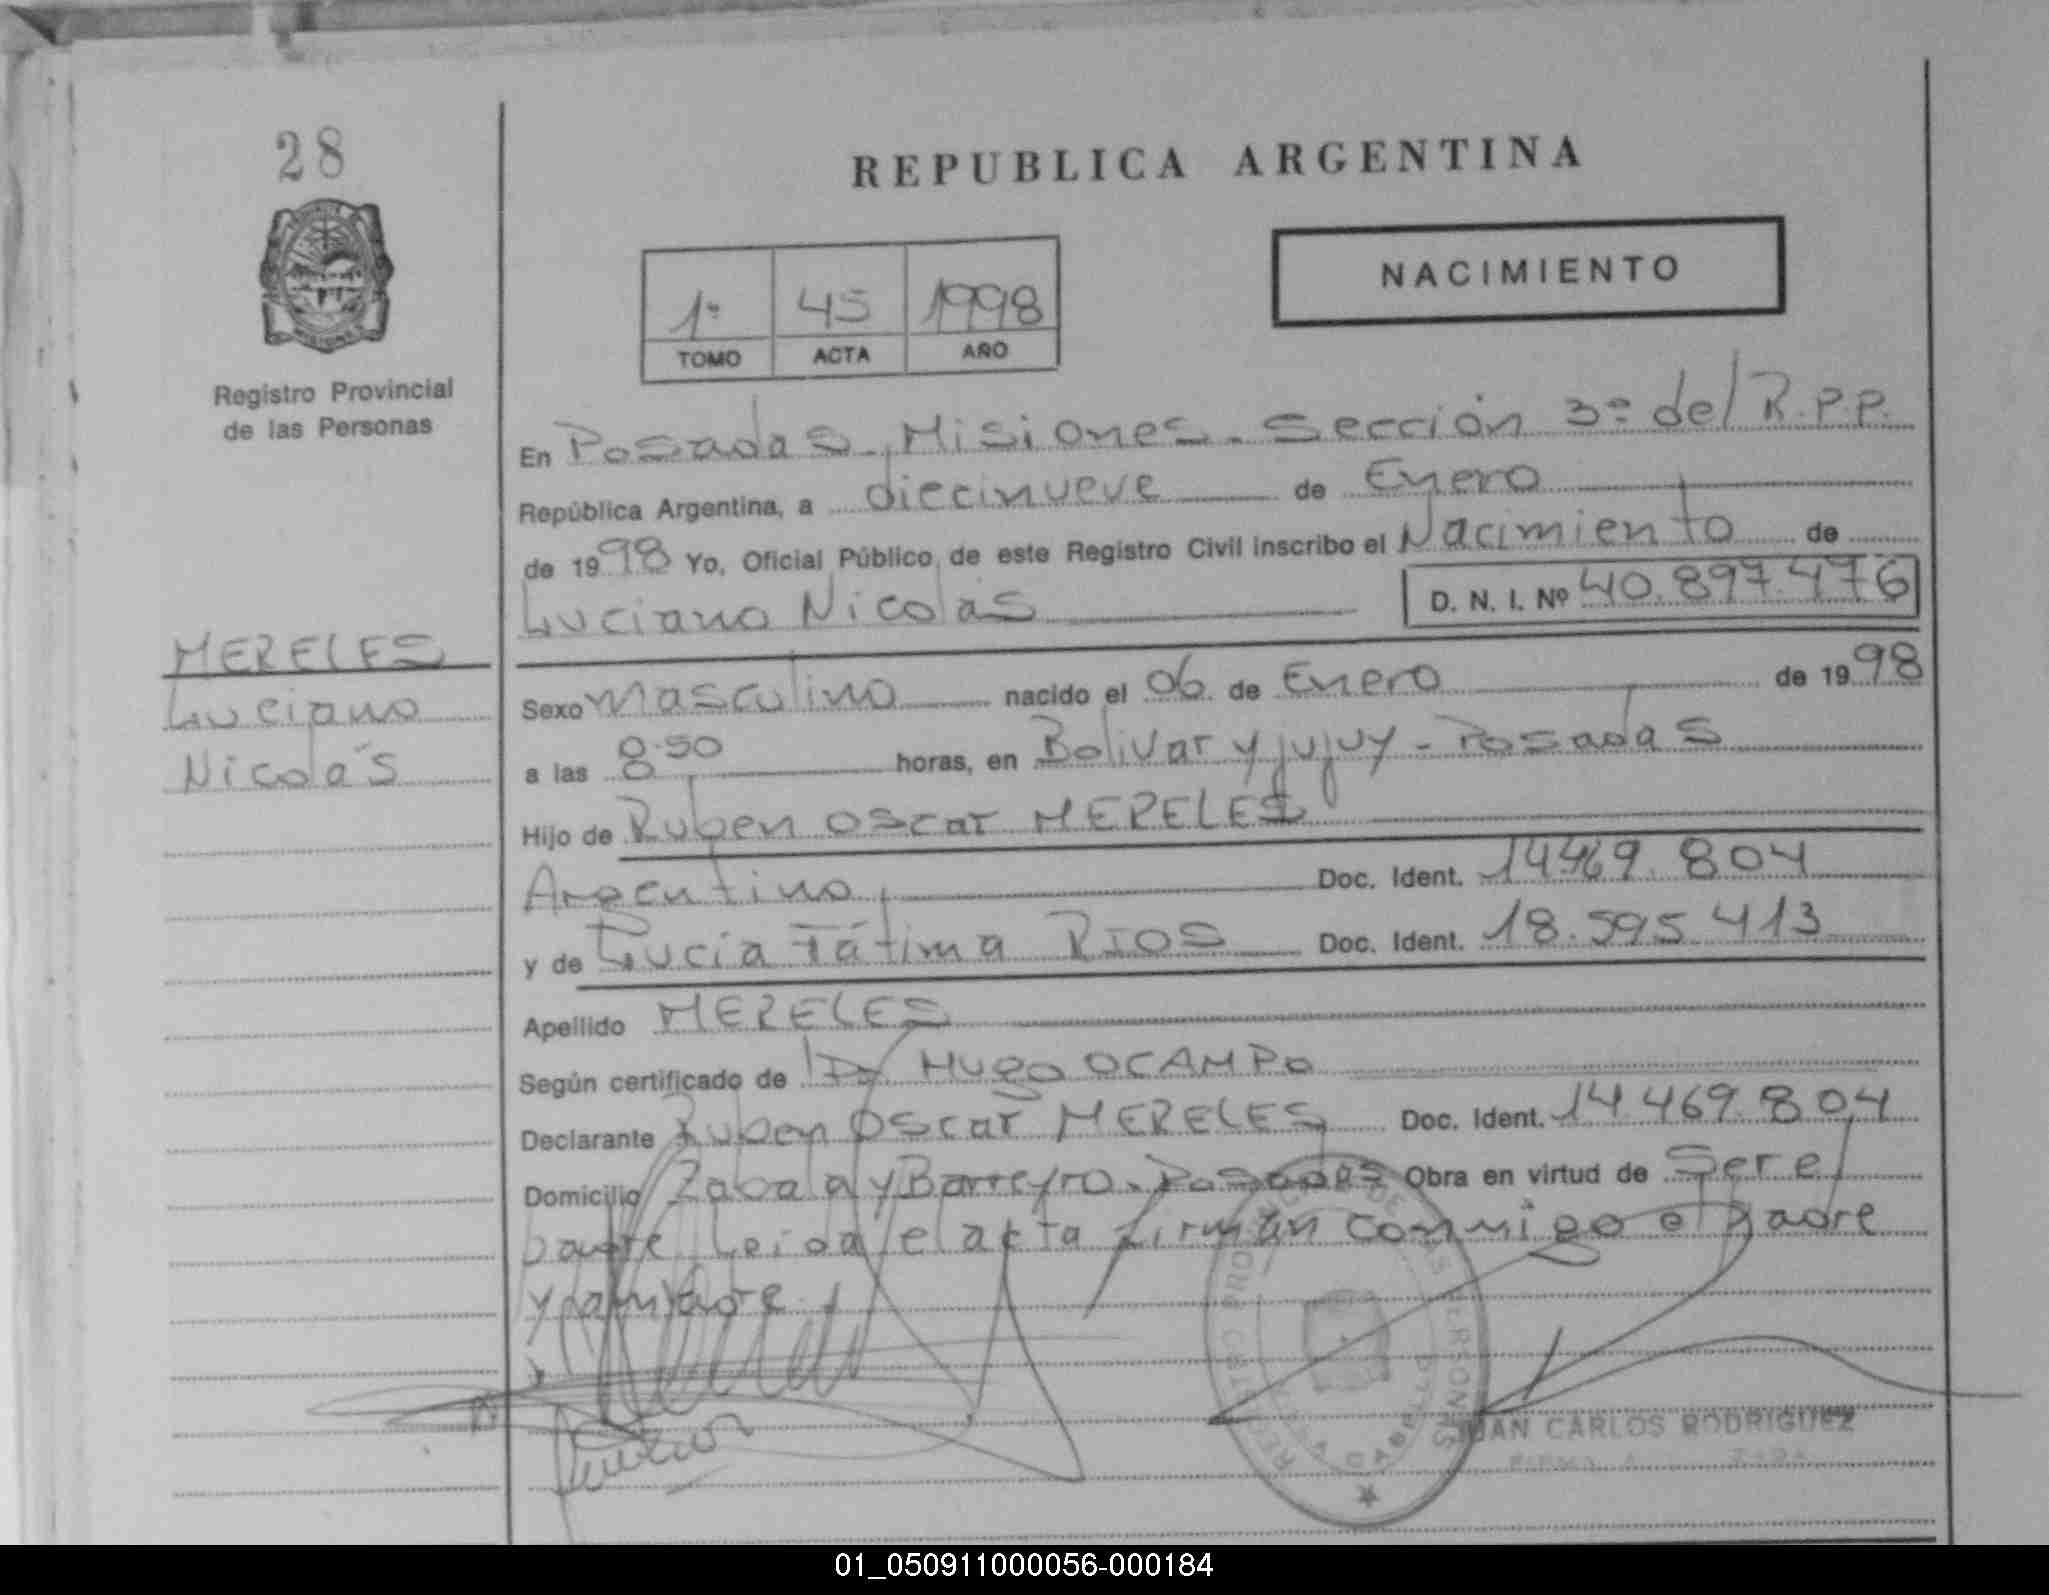 28
REPUBLICA ARGENTINA
NACIMIENTO
1º 45 1998
TOMO ACTA AÑO
Registro Provincial
de las Personas
En Posadas, Misiones - Sección 3º del R.P.P.
República Argentina, a diecinueve de Enero
de 1998 Yo, Oficial Público de este Registro Civil inscribo el Nacimiento de
Luciano Nicolas D. N. I. Nº 40.897.476
MERELES
Luciano
Nicolás
Sexo Masculino nacido el 06 de Enero de 1998
a las 8.50 horas, en Bolivar y jujuy - Posadas
Hijo de Ruben Oscar MERELES
Argentino Doc. Ident. 14469.804
y de Lucía Fátima RIOS Doc. Ident. 18.595.413
Apellido MERELES
Según certificado de Dr Hugo OCAMPO
Declarante Ruben Oscar MERELES Doc. Ident. 14 469.804
Domicilio Zabala y Barreyro - Posadas Obra en virtud de Ser el
padre Leida el acta firman conmigo el padre
y la madre
JUAN CARLOS RODRIGUEZ
01_050911000056-000184